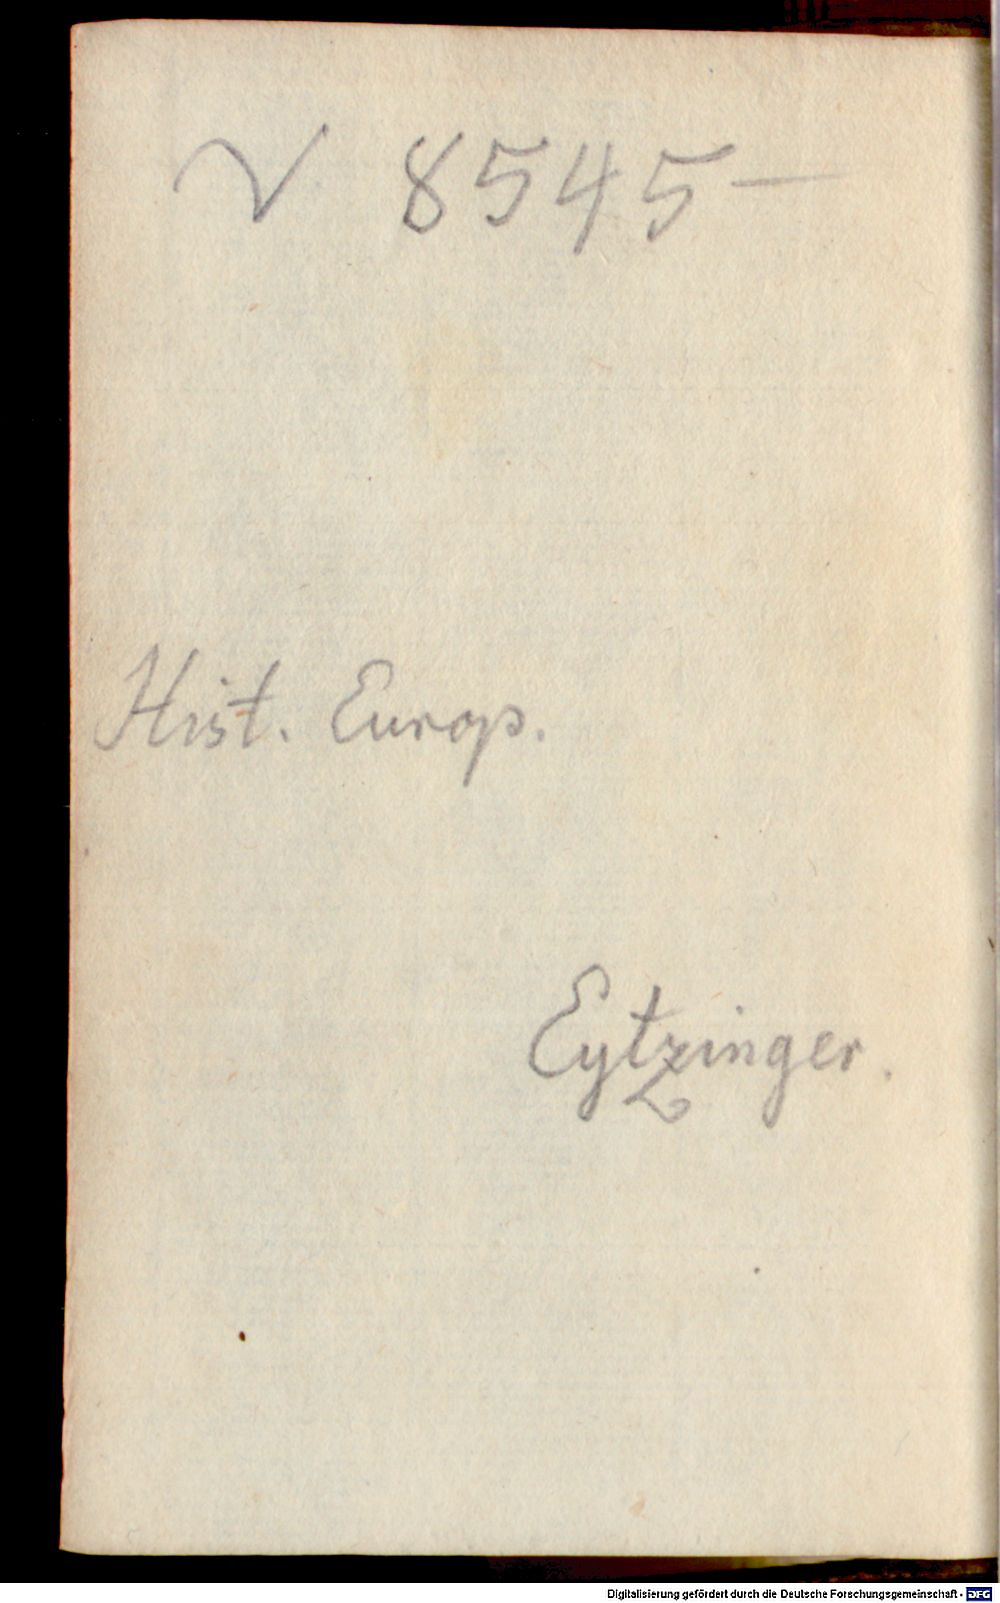 V 8545-
Hist. Europ.
Eytzinger.
Digitalisierung gefördert durch die Deutsche Forschungsgemeinschaft - DFG